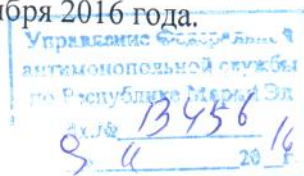 ября 2016 года.
Управление Федеральной
антимонопольной службы
по Республике Марий Эл
Вх.№ 13456
9 11 2016 г.